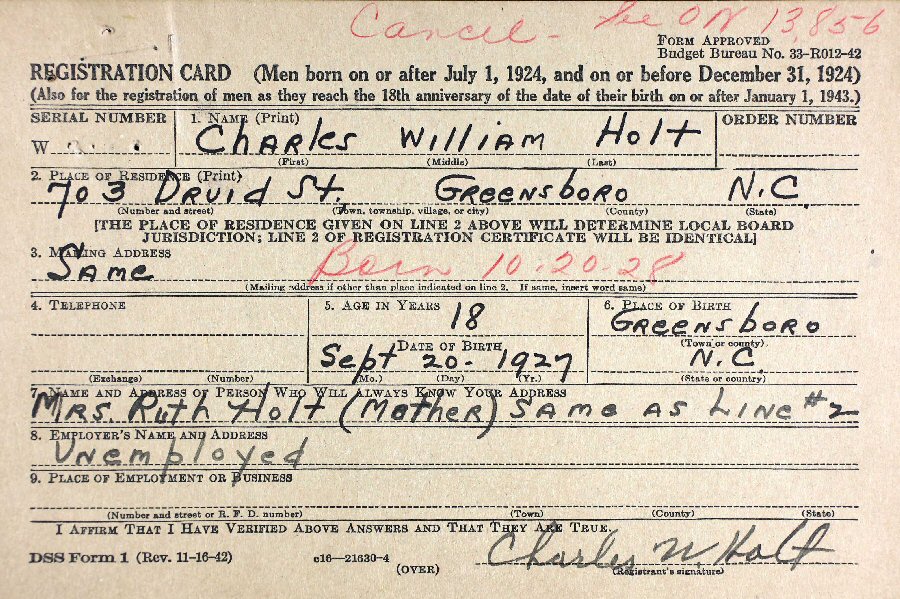 Cancel - See ON 13,856
FORM APPROVED
Budget Bureau No. 33-R012-42
REGISTRATION CARD (Men born on or after July 1, 1924, and on or before December 31, 1924)
(Also for the registration of men as they reach the 18th anniversary of the date of their birth on or after January 1, 1943.)
SERIAL NUMBER 1. NAME (Print) ORDER NUMBER
W Charles William Holt
(First) (Middle) (Last)
2. PLACE OF RESIDENCE (Print)
703 Druid St. Greensboro N.C.
(Number and street) (Town, township, village, or city) (County) (State)
[THE PLACE OF RESIDENCE GIVEN ON LINE 2 ABOVE WILL DETERMINE LOCAL BOARD
JURISDICTION; LINE 2 OF REGISTRATION CERTIFICATE WILL BE IDENTICAL]
3. MAILING ADDRESS
Same Born 10-20-28
(Mailing address if other than place indicated on line 2. If same, insert word same)
4. TELEPHONE 5. AGE IN YEARS 6. PLACE OF BIRTH
18 Greensboro
DATE OF BIRTH (Town or county)
Sept 20 - 1927 N.C.
(Exchange) (Number) (Mo.) (Day) (Yr.) (State or country)
7. NAME AND ADDRESS OF PERSON WHO WILL ALWAYS KNOW YOUR ADDRESS
Mrs. Ruth Holt (Mother) Same as Line #2
8. EMPLOYER'S NAME AND ADDRESS
Unemployed
9. PLACE OF EMPLOYMENT OR BUSINESS
(Number and street or R. F. D. number) (Town) (County) (State)
I AFFIRM THAT I HAVE VERIFIED ABOVE ANSWERS AND THAT THEY ARE TRUE.
DSS Form 1 (Rev. 11-16-42) c16—21630-4 Charles W. Holt
(OVER) (Registrant's signature)